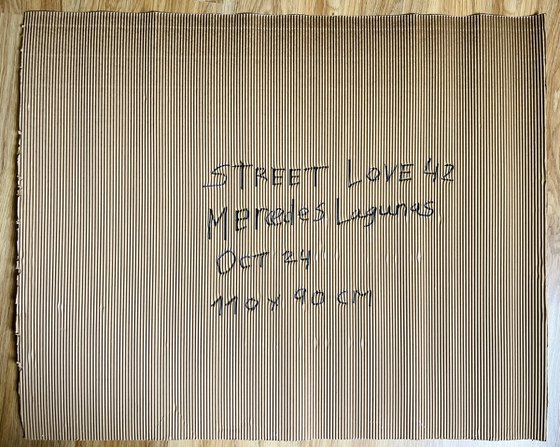 STREET LOVE 42
Mercedes Lagunas
Oct 24
110 x 90 cm